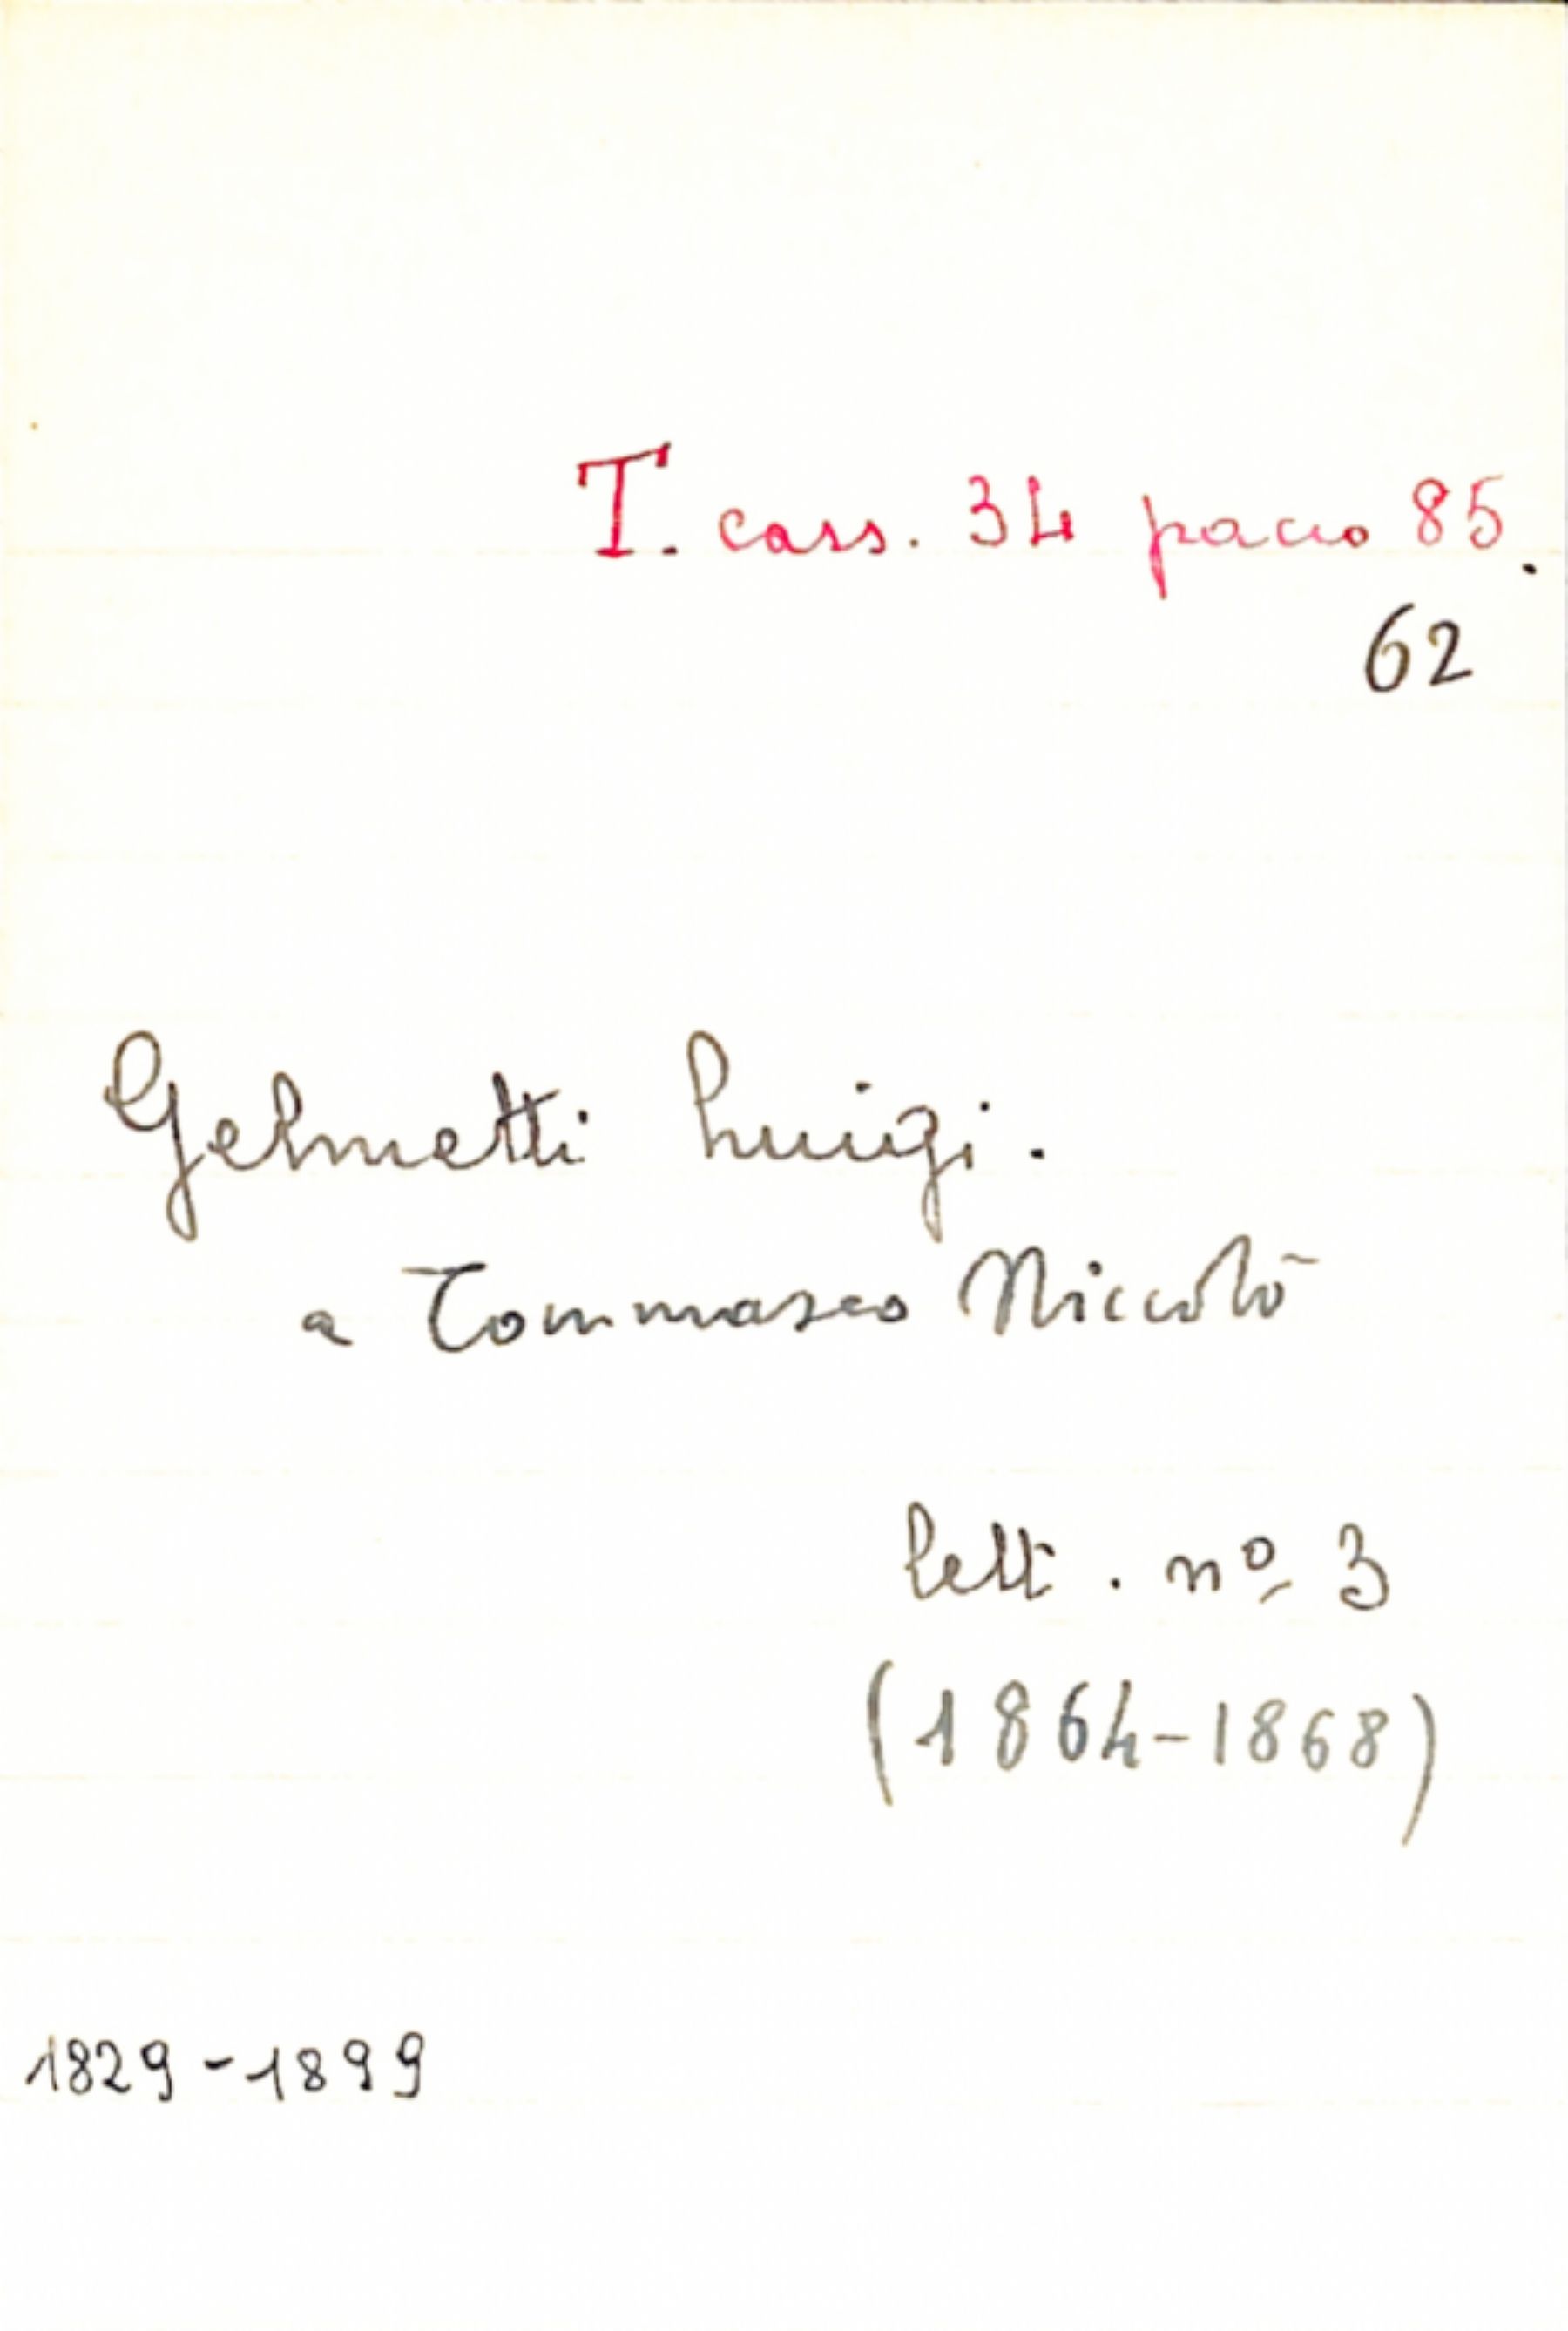 T. cass. 34 pacco 85.
62
Gelmetti Luigi.
a Tommaseo Niccolò
lett. nº 3
(1864-1868)
1829-1899